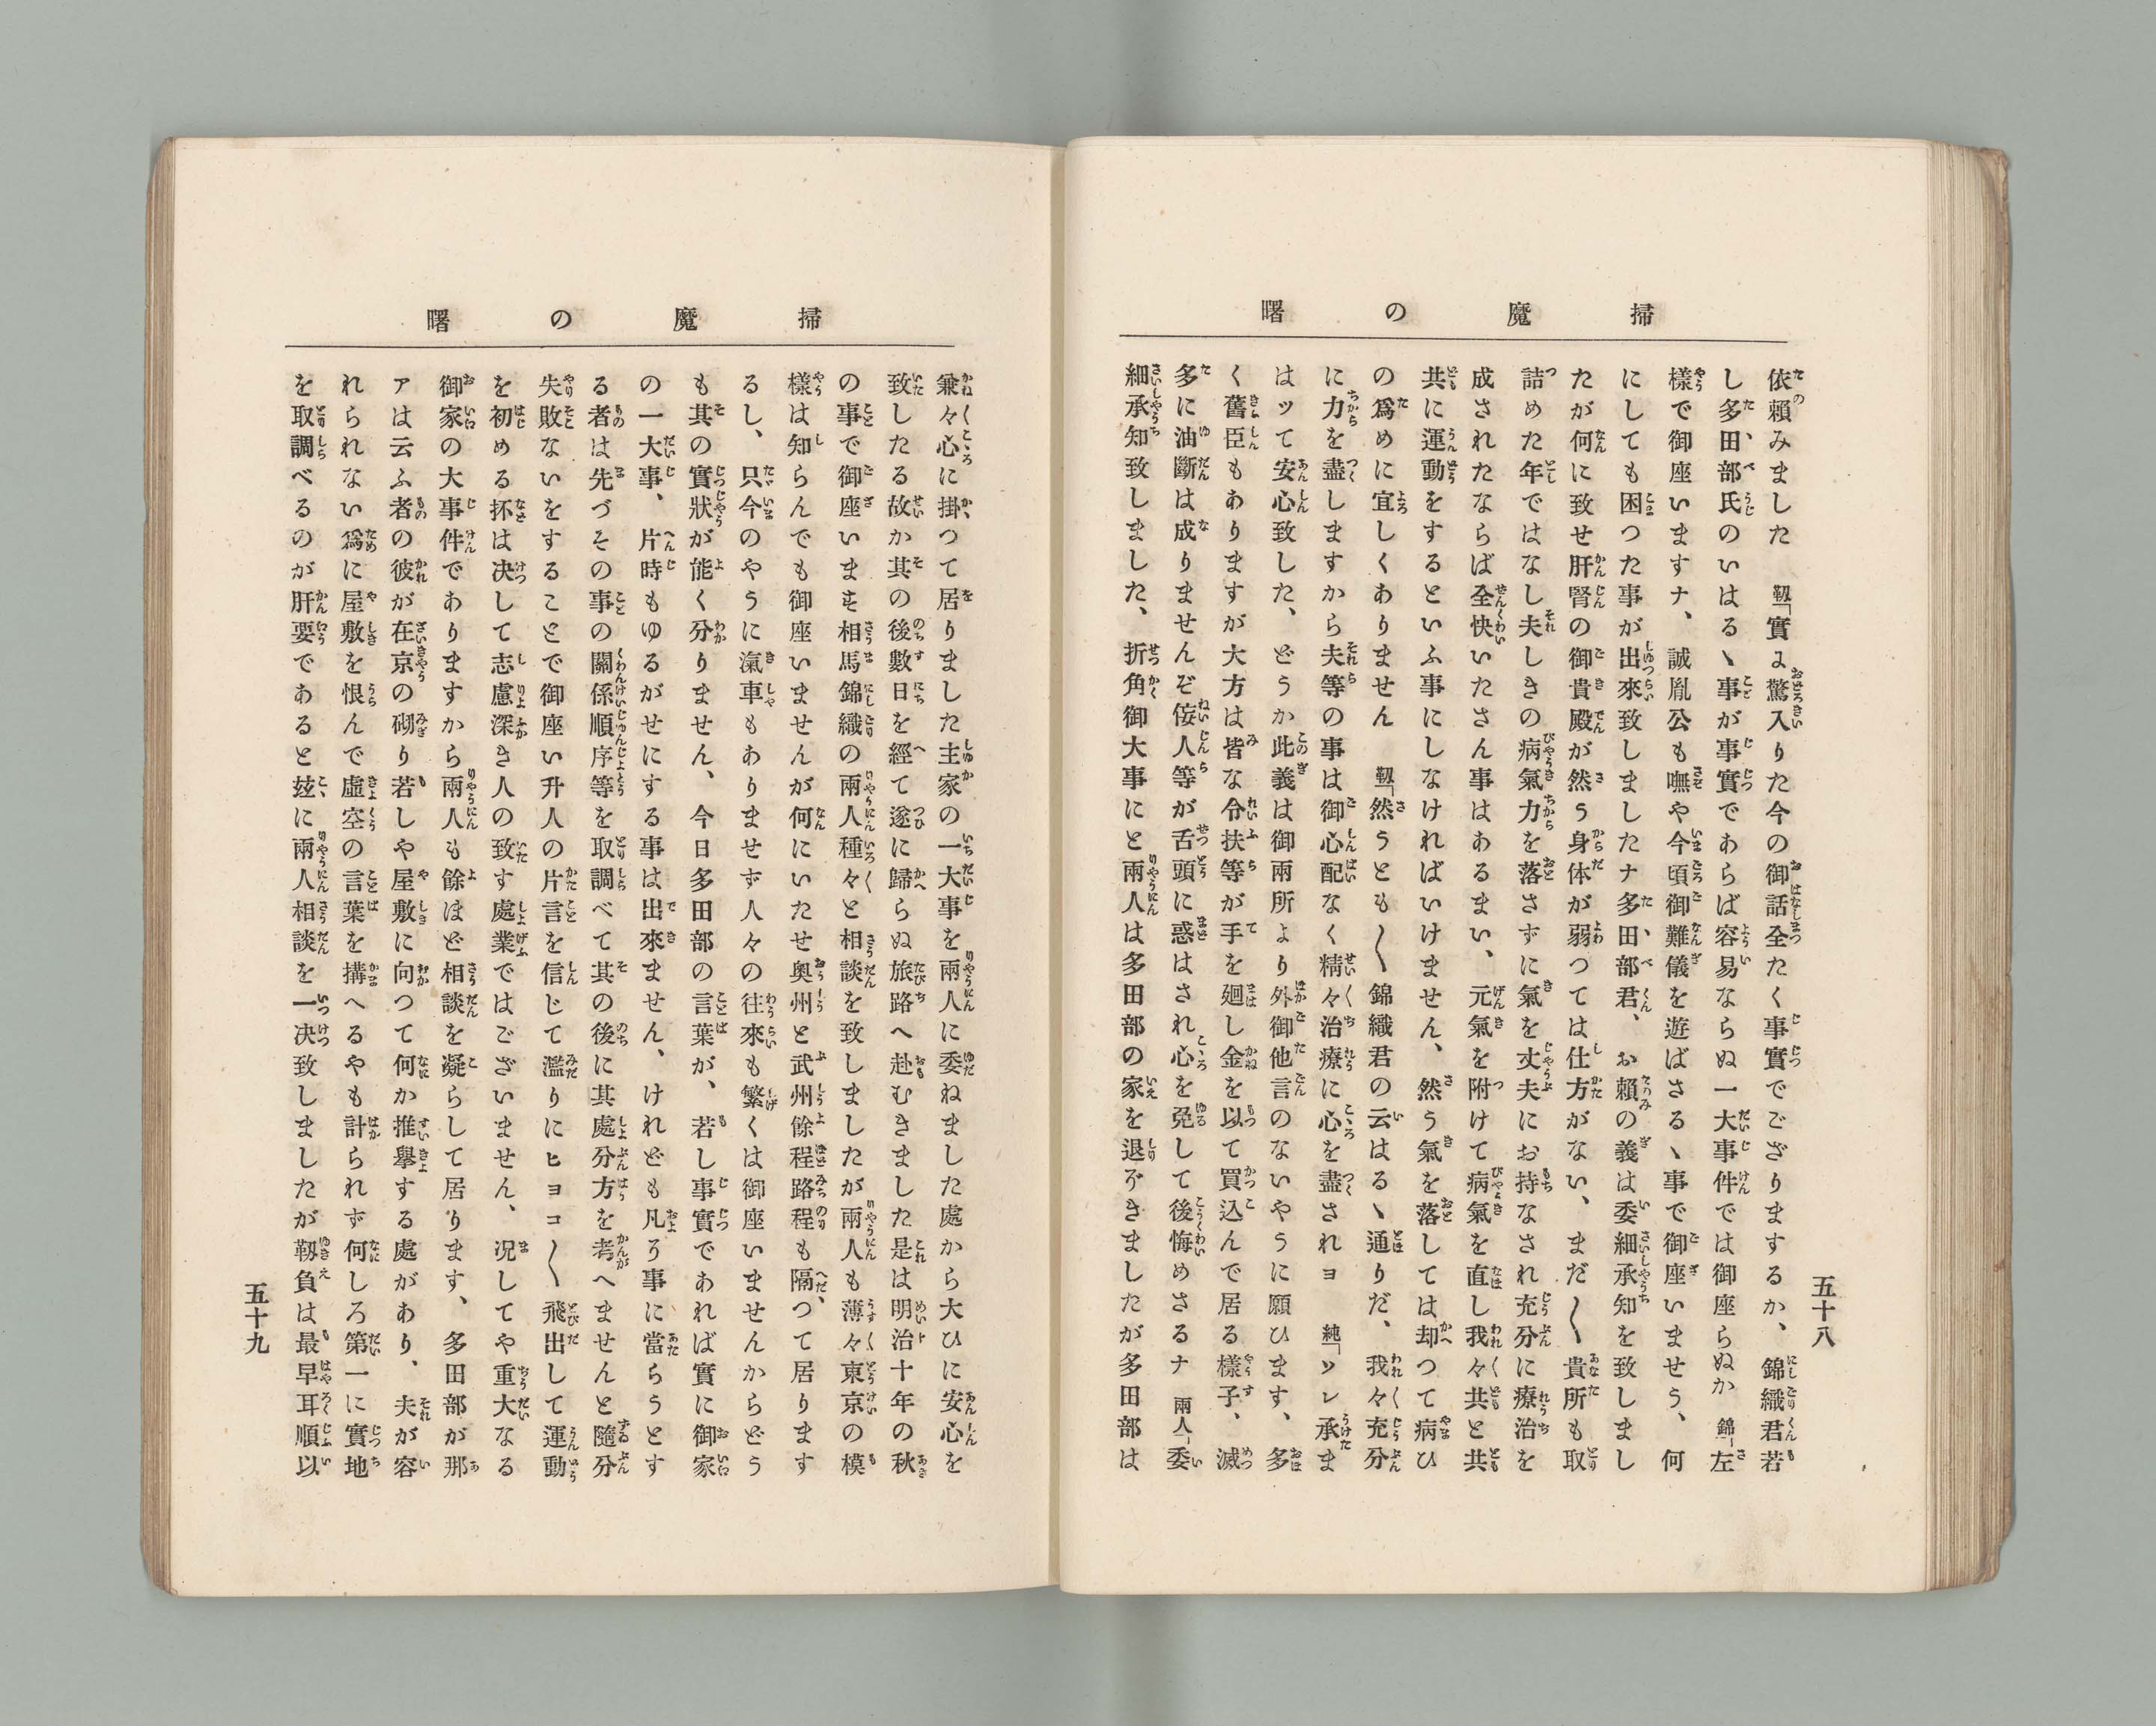 掃魔の曙
依頼みました　靱「實に驚入りた今の御話全たく事實でござりまするか、錦織君若
し多田部氏のいはるゝ事が事實であらば容易ならぬ一大事件では御座らぬか　錦「左
樣で御座いますナ、誠胤公も嘸や今頃御難儀を遊ばさるゝ事で御座いませう、何
にしても困つた事が出來致しましたナ多田部君、お賴の義は委細承知を致しまし
たが何に致せ肝腎の御貴殿が然う身体が弱つては仕方がない、まだ〱貴所も取
詰めた年ではなし夫しきの病氣力を落さずに氣を丈夫にお持なされ充分に療治を
成されたならば全快いたさん事はあるまい、元氣を附けて病氣を直し我々共と共
共に運動をするといふ事にしなければいけません、然う氣を落しては却つて病ひ
の爲めに宜しくありません　靱「然うとも〱錦織君の云はるゝ通りだ、我々充分
に力を盡しますから夫等の事は御心配なく精々治療に心を盡されヨ　純「ソレ承ま
はッて安心致した、どうか此義は御兩所より外御他言のないやうに願ひます、多
く舊臣もありますが大方は皆な令扶等が手を廻し金を以て買込んで居る樣子、滅
多に油斷は成りませんぞ侫人等が舌頭に惑はされ心を免して後悔めさるナ　兩人「委
細承知致しました、折角御大事にと兩人は多田部の家を退ぞきましたが多田部は
五十八
掃魔の曙
兼々心に掛つて居りました主家の一大事を兩人に委ねました處から大ひに安心を
致したる故か其の後數日を經て遂に歸らぬ旅路へ赴むきました是は明治十年の秋
の事で御座います相馬錦織の兩人種々と相談を致しましたが兩人も薄々東京の模
樣は知らんでも御座いませんが何にいたせ奧州と武州餘程路程も隔つて居ります
るし、只今のやうに滊車もありませず人々の往來も繁くは御座いませんからどう
も其の實狀が能く分りません、今日多田部の言葉が、若し事實であれば實に御家
の一大事、片時もゆるがせにする事は出來ません、けれども凡そ事に當らうとす
る者は先づその事の關係順序等を取調べて其の後に其處分方を考へませんと隨分
失敗ないをすることで御座い升人の片言を信じて濫りにヒヨコ〱飛出して運動
を初める抔は决して志慮深き人の致す處業ではございません、况してや重大なる
御家の大事件でありますから兩人も餘ほど相談を凝らして居ります、多田部が那
アは云ふ者の彼が在京の砌り若しや屋敷に向つて何か推擧する處があり、夫が容
れられない爲に屋敷を恨んで虛空の言葉を搆へるやも計られず何しろ第一に實地
を取調べるのが肝要であると玆に兩人相談を一决致しましたが靱負は最早耳順以
五十九